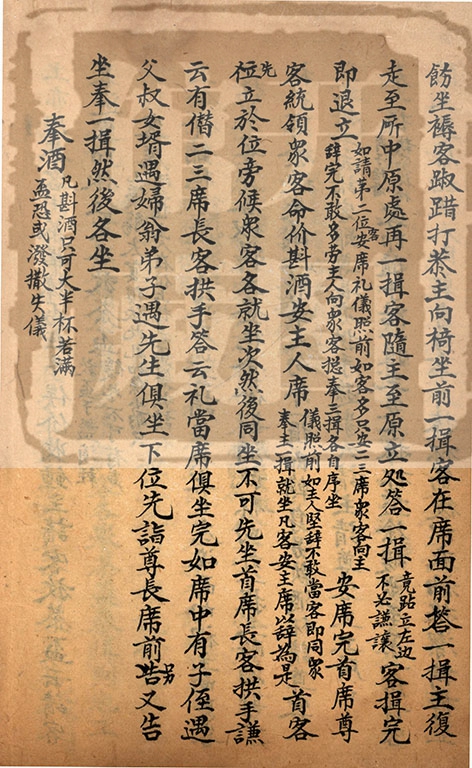 飭坐褥客踧踖打恭主向椅坐前一揖客在席面前荅一揖主復
走至所中原處再一揖客隨主至原立処答一揖竟跕立左边不必謙讓客揖完
即退立如請第二位客安席礼儀照前如客多只安二三席衆客向主辞完不敢多劳主人向衆客揔奉三揖各自序坐安席完首席尊
客統領衆客命价斟酒安主人席儀照前如主人堅辞不敢當客即同衆奉主一揖就坐凡客安主席以辞為是首客
先位立於位旁候衆客各就坐次然後同坐不可先坐首席長客拱手謙
云有僣二三席長客拱手答云礼當席俱坐完如席中有子侄遇
父叔女壻遇婦翁弟子遇先生俱坐下位先詣尊長席前告另又告
坐奉一揖然後各坐
奉酒凡斟酒只可大半杯若滿盃恐或潑撒失儀